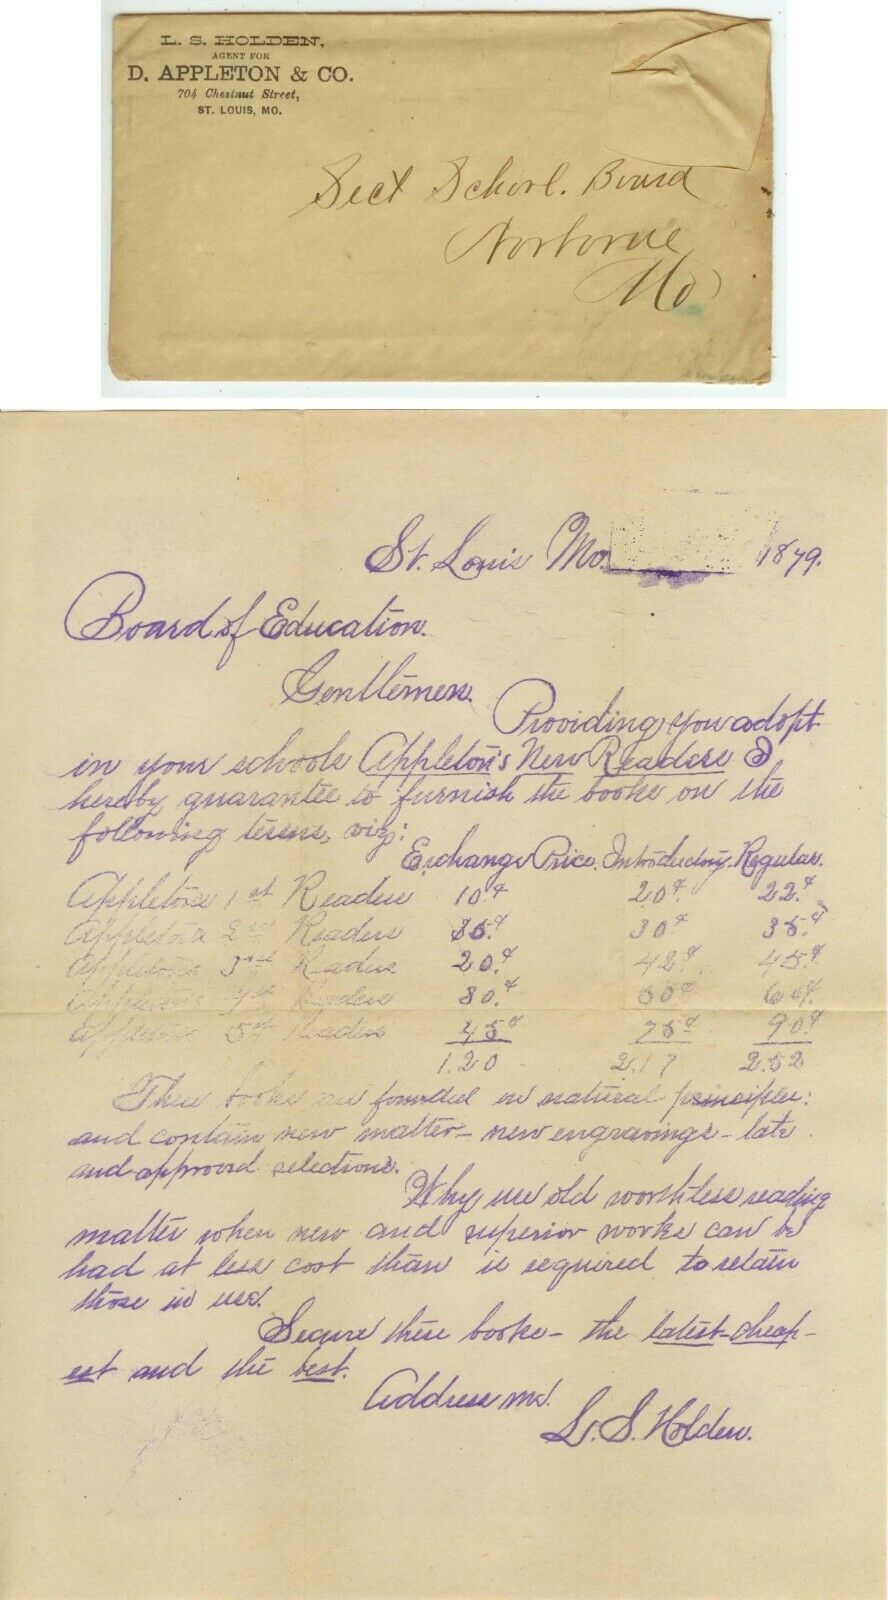 L. S. HOLDEN,
AGENT FOR
D. APPLETON & CO.
704 Chestnut Street,
ST. LOUIS, MO.
Sect School. Board
Norborne
Mo
St. Louis Mo. 1879.
Board of Education.
Gentlemen.
Providing you adopt
in your schools Appleton's New Readers I
hereby guarantee to furnish the books on the
following terms, viz:
Exchange Price. Introductory. Regular.
Appletons 1st Readers 10¢ 20¢ 22.¢
Appletons 2nd Readers 15.¢ 30¢ 35.¢
Appletons 3rd Readers 20.¢ 42¢ 45¢
Appletons 4th Readers 30.¢ 50¢ 60¢
Appletons 5th Readers 45¢ 75¢ 90¢
1.20 2.17 2.52
These books are founded on natural principles:
and contain new matter - new engravings - late
and approved selections.
Why use old worthless reading
matter when new and superior works can be
had at less cost than is required to retain
those in use.
Secure these books - the latest - cheap-
est and the best.
Address me.
L. S. Holden.